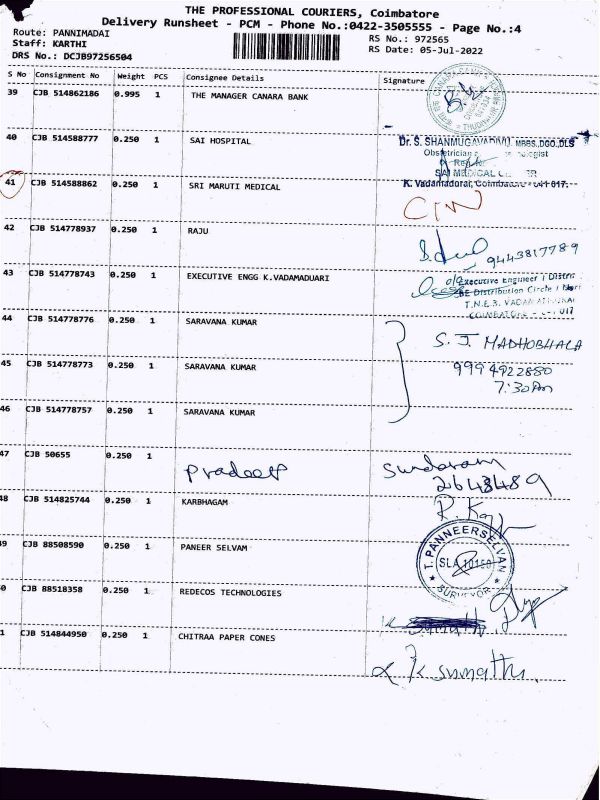 THE PROFESSIONAL COURIERS, Coimbatore
Delivery Runsheet - PCM - Phone No.:0422-3505555 - Page No.:4
Route: PANNIMADAI
RS No.: 972565
Staff: KARTHI
RS Date: 05-Jul-2022
DRS No.: DCJB97256504
S No Consignment No Weight PCS Consignee Details Signature
39 CJB 514862186 0.995 1 THE MANAGER CANARA BANK
40 CJB 514588777 0.250 1 SAI HOSPITAL
Dr. S. SHANMUGAVADIVU, MBBS,DGO.,DLS
Obstetrician
SAI MEDICAL
K. Vadamadurai, Coimbatore - 641 017.
41 CJB 514588862 0.250 1 SRI MARUTI MEDICAL
42 CJB 514778937 0.250 1 RAJU
9443817789
43 CJB 514778743 0.250 1 EXECUTIVE ENGG K.VADAMADUARI
Executive Engineer / Distri
Distribution Circle / Nort
T.N.E.B. VADAMADURAI
COIMBATORE 017
44 CJB 514778776 0.250 1 SARAVANA KUMAR
S. J. MADHOBHALA
45 CJB 514778773 0.250 1 SARAVANA KUMAR
9994922880
7:30 Am
46 CJB 514778757 0.250 1 SARAVANA KUMAR
47 CJB 50655 0.250 1 Pradeep Sundaram
2643489
48 CJB 514825744 0.250 1 KARBHAGAM
49 CJB 88508590 0.250 1 PANEER SELVAM
T. PANNEERSELVAN
SLA 10150
SURVEYOR
0 CJB 88518358 0.250 1 REDECOS TECHNOLOGIES
1 CJB 514844950 0.250 1 CHITRAA PAPER CONES
K sumathi.